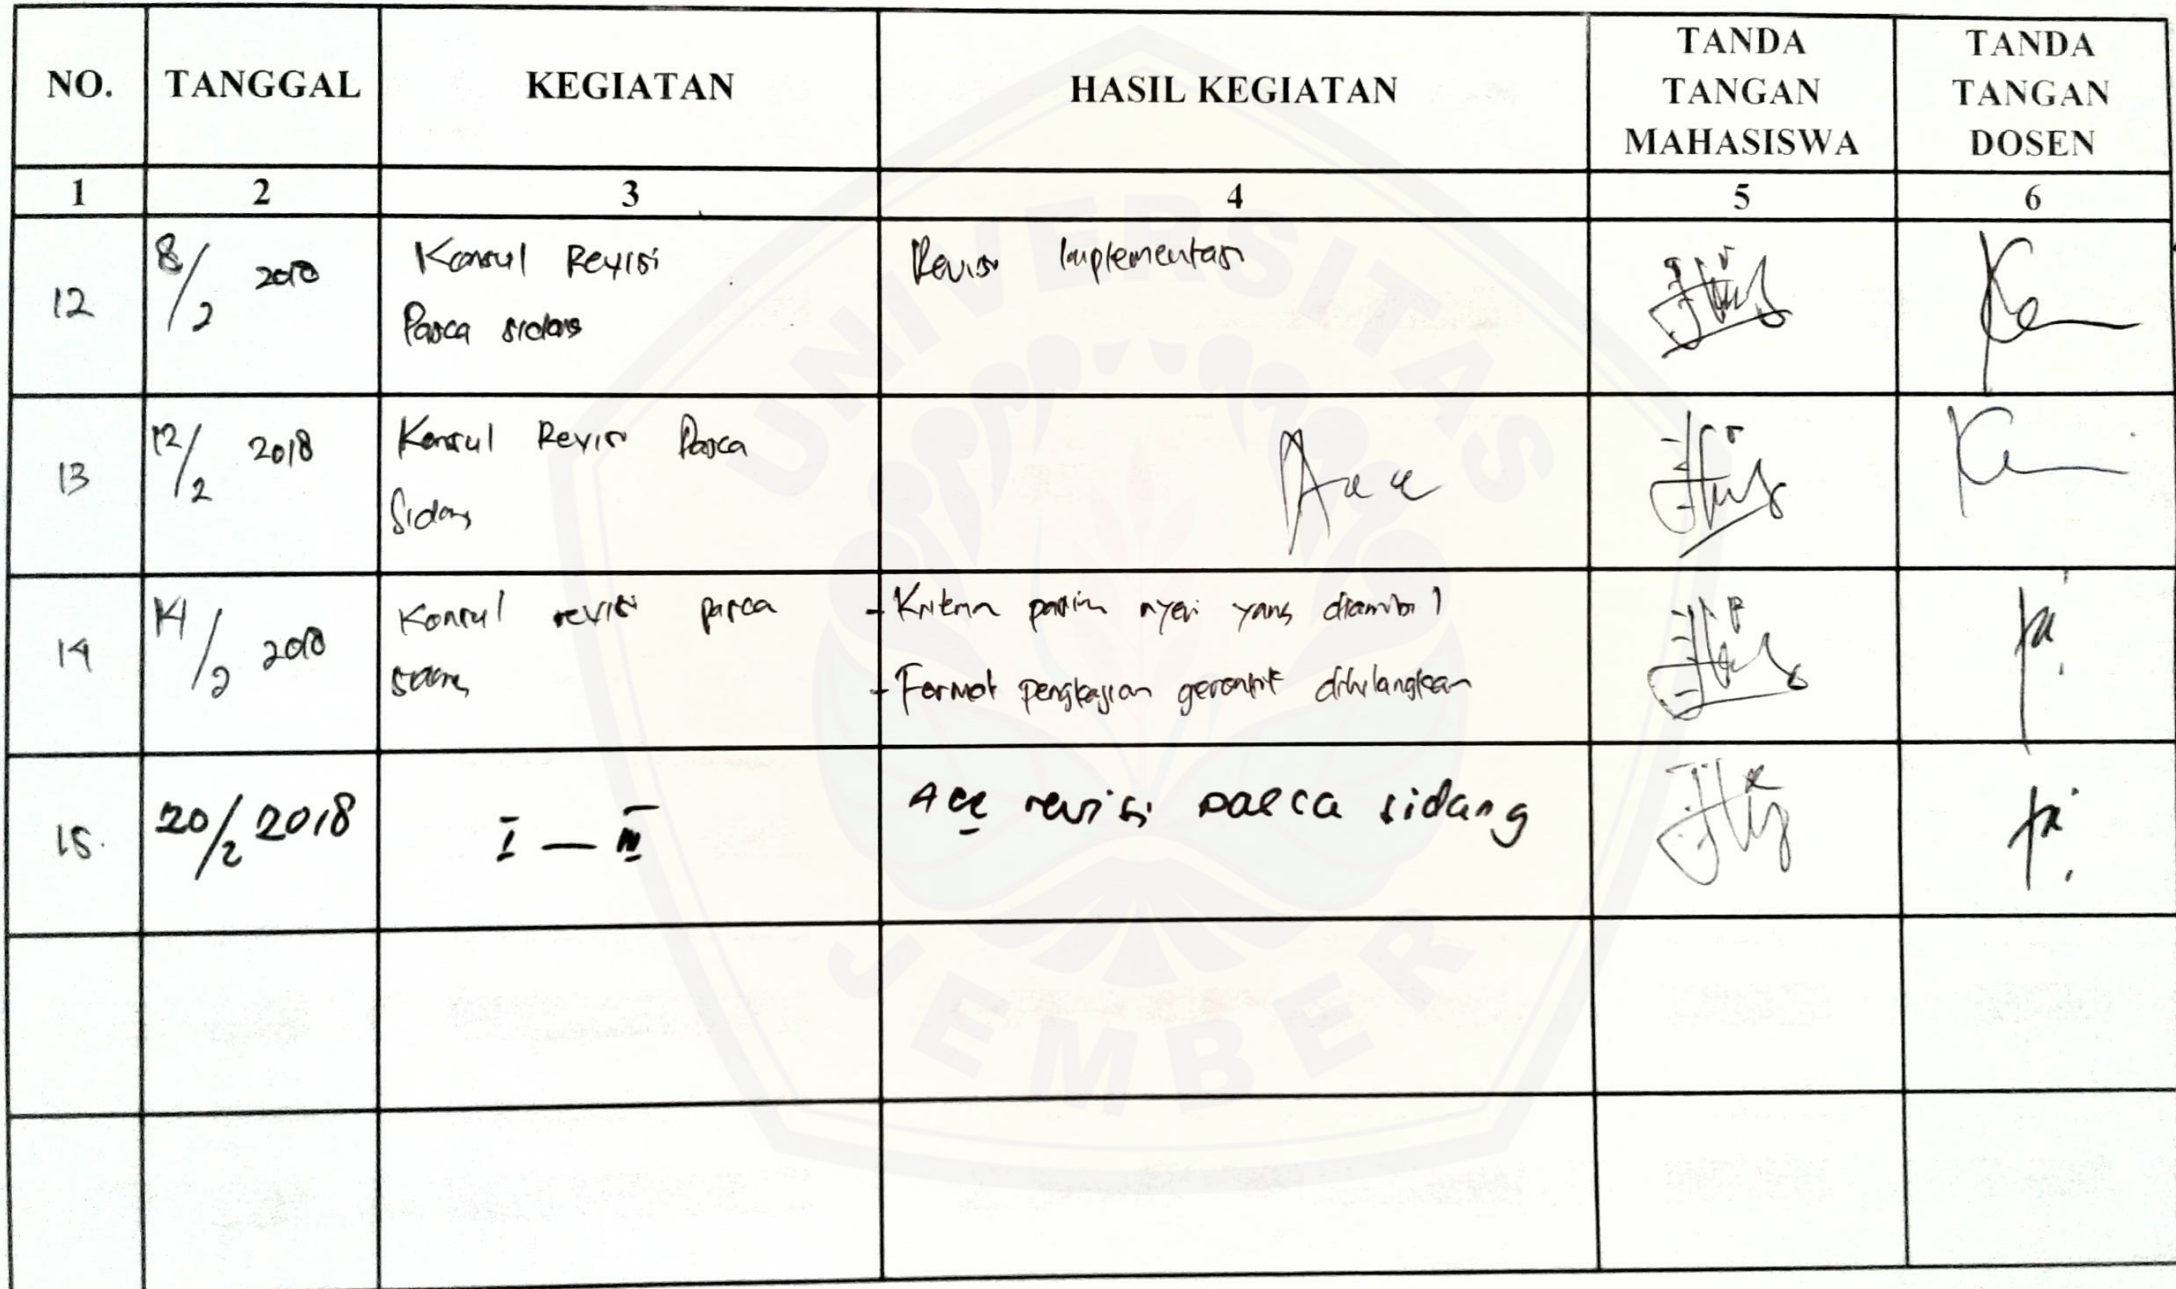 NO. TANGGAL KEGIATAN HASIL KEGIATAN TANDA TANGAN MAHASISWA TANDA TANGAN DOSEN
1 2 3 4 5 6
12 8/2 2018 Konsul Revisi Revisi Implementasi
Pasca sidang
13 12/2 2018 Konsul Revisi Pasca
Sidang
14 14/2 2018 Konsul revisi pasca - Kriteria pasien nyeri yang diambil
sidang - Format pengkajian gerontik dihilangkan
15. 20/2 2018 I — III Acc revisi pasca sidang
UNIVERSITAS
JEMBER